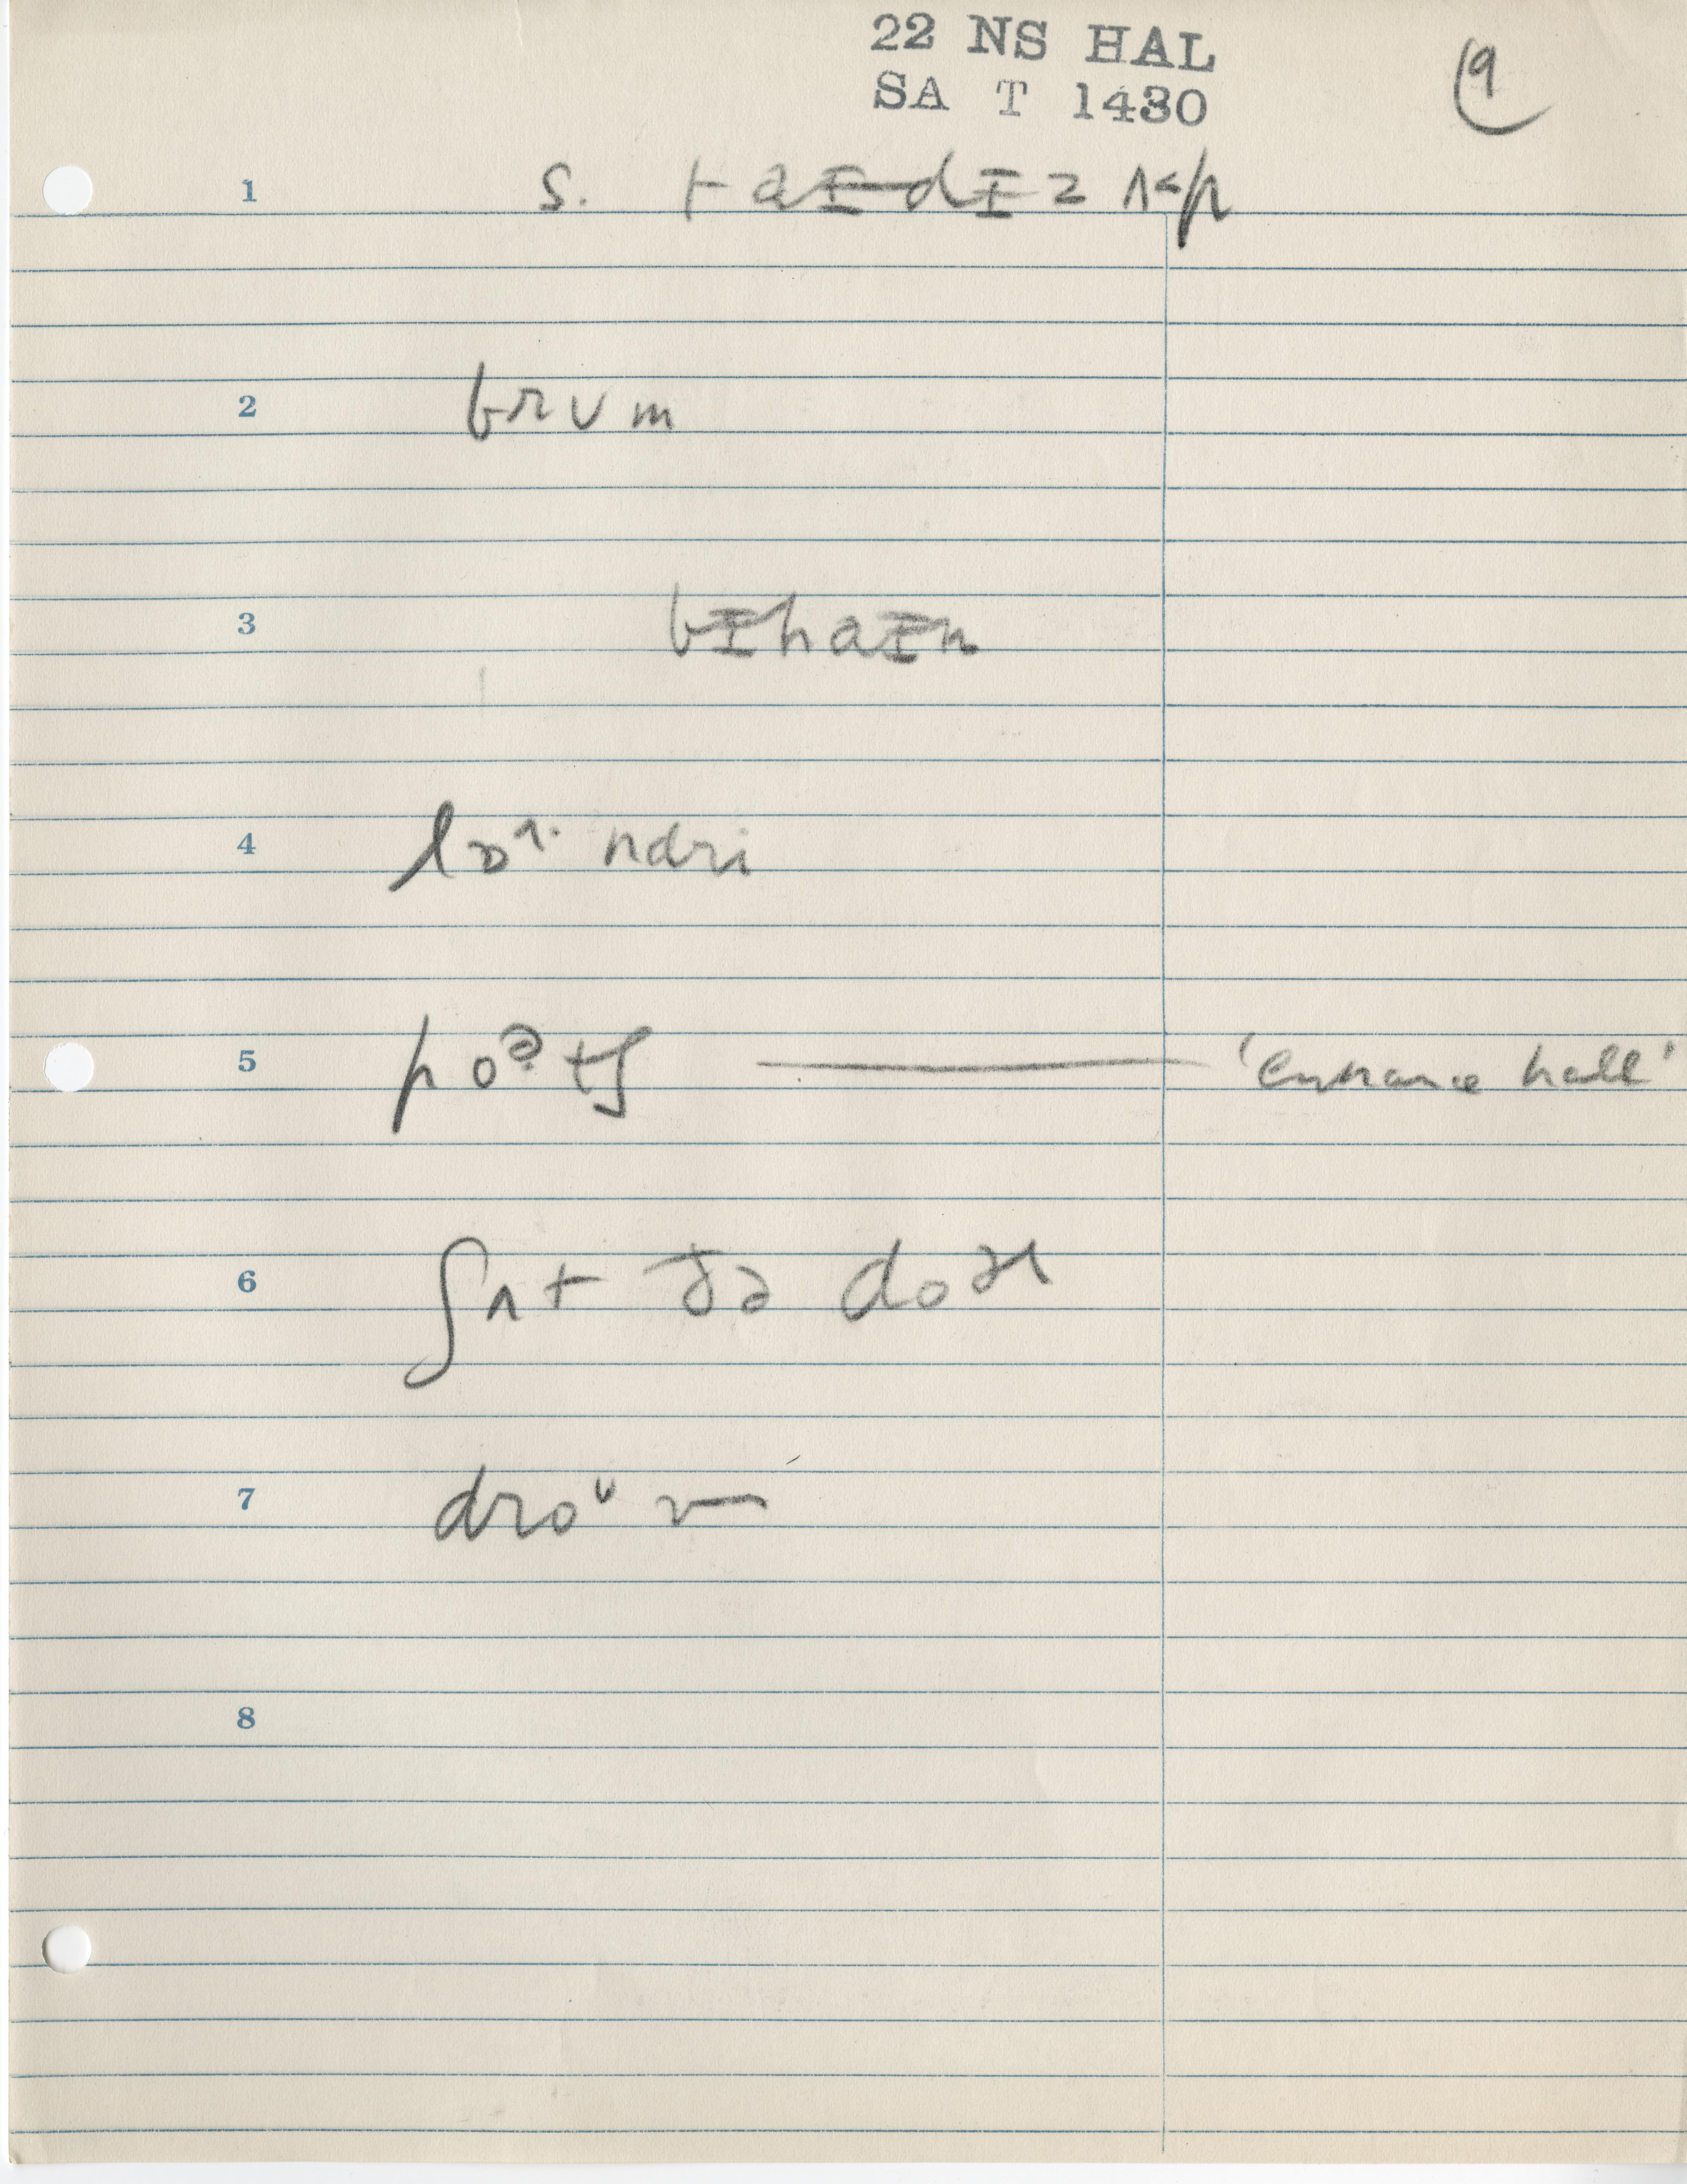 22 NS HAL
SA T 1430
9
1 s. taɨdɨz ʌ˂p
2 brʊm
3 bɨhaɨn
4 lɒ^·ndri
5 poᵊtʃ 'entrance hall'
6 ʃʌt ðə doᵊɹ
7 droᶷ
8